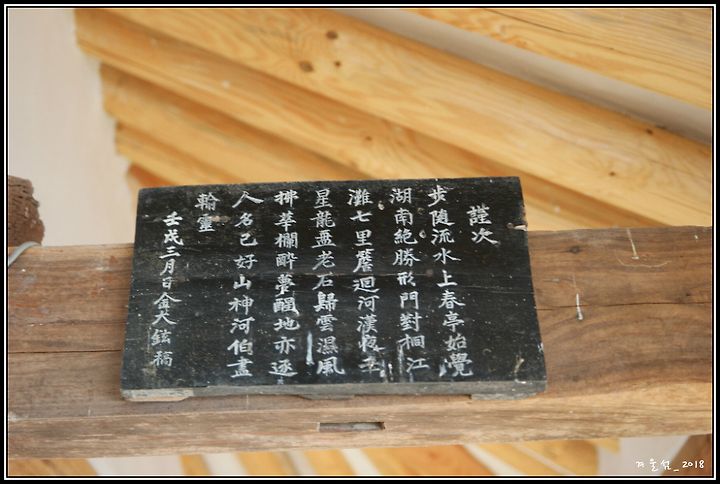 謹次
步随流水上春亭始覺
湖南絶勝形門對桐江
灘七里簷迴河漢夜三
星龍盤老石歸雲濕風
拂華欄醉夢醒地亦逐
人名已好山神河伯盡
輸靈
壬戌三月日金大鉉稿
겨울섬_2018